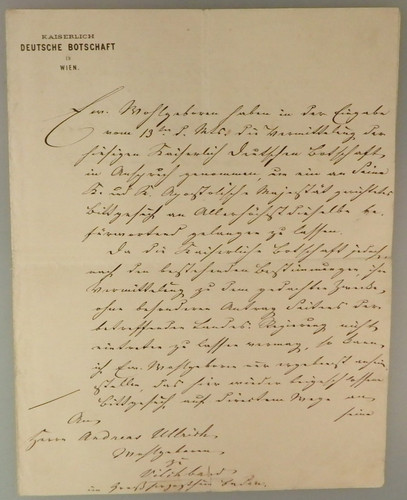 KAISERLICH
DEUTSCHE BOTSCHAFT
IN
WIEN.
Ew. Wohlgeboren haben in der Eingabe
vom 13ten d. Mts. die Vermittelung der
hiesigen Kaiserlich Deutschen Botschaft
in Anspruch genommen, um ein an Seine
K. und K. Apostolische Majestät gerichtetes
Bittgesuch an Allerhöchstdieselbe be-
fürwortend gelangen zu lassen.
Da die Kaiserliche Botschaft jedoch
nach den bestehenden Bestimmungen ihre
Vermittelung zu dem gedachten Zwecke,
ohne besonderen Antrag Seitens der
betreffenden Landes-Regierung nicht
eintreten zu lassen vermag, so kann
ich Ew. Wohlgeboren nur ergebenst anheim
stellen, das hier wieder beigeschlossene
Bittgesuch auf directem Wege an
seine
An
Herrn Andreas Ullrich
Wohlgeboren
zu
im Großherzogthum Baden.